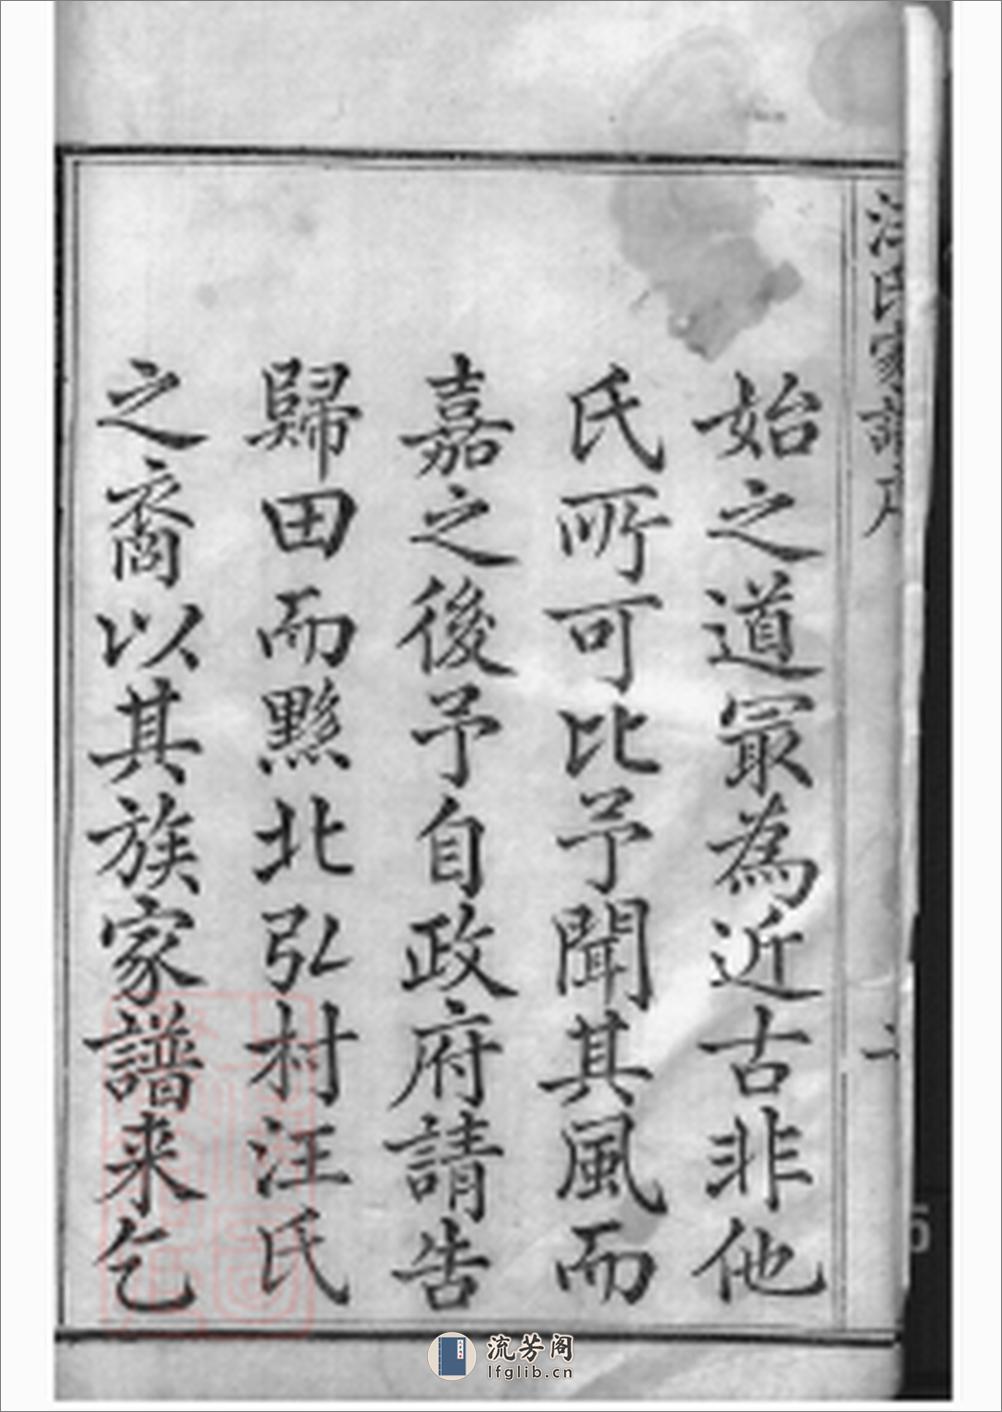 汪氏家譜序
始之道㝡為近古非他
氏所可比予聞其風而
嘉之後予自政府請告
歸田而黟北弘村汪氏
之裔以其族家譜来乞
流芳阁
lfglib.cn